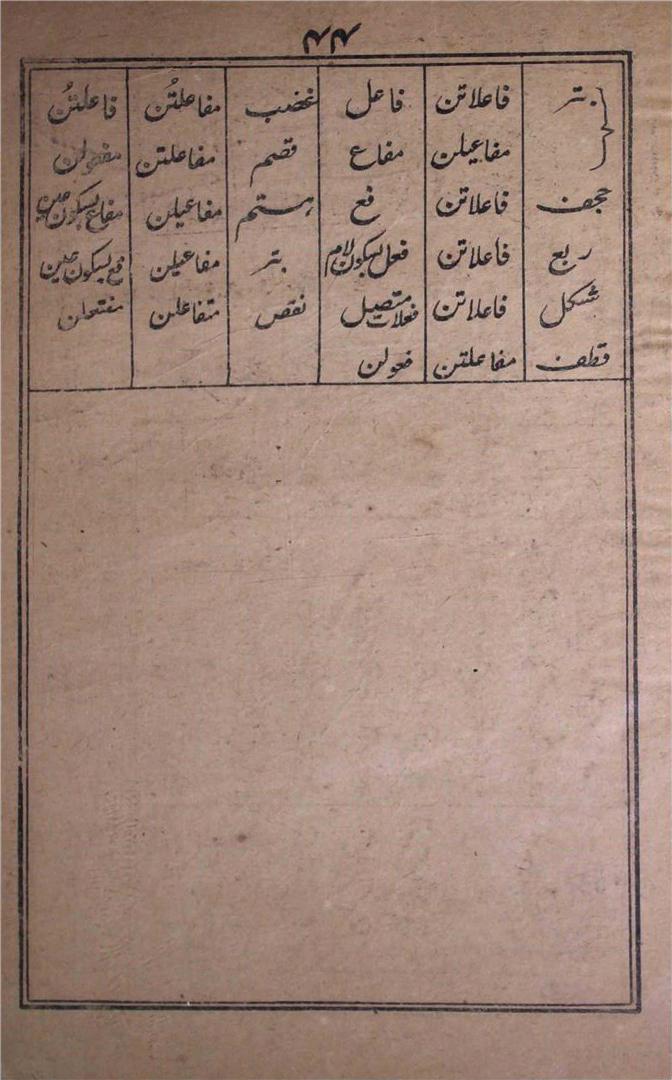 ۴۴
بتر فاعلاتن فاعل غضب مفاعلتُن فاعلتُن
مفاعیلن مفاع قصم مفاعلتن مفعولن
حجف فاعلاتن فع ہستم مفاعیلن مفاع بسکون عین
ربع فاعلاتن فعل بسکون لام بتر مفاعیلن فع بسکون عین
شکل فاعلاتن فعلات متصل نقص متفاعلن مفتعلن
قطف مفاعلتن فعولن